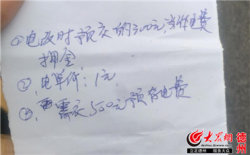 ①电改时预交的300元,当作电费
押金
②电单价:1元
③需交500元预存电费
大众网 德州